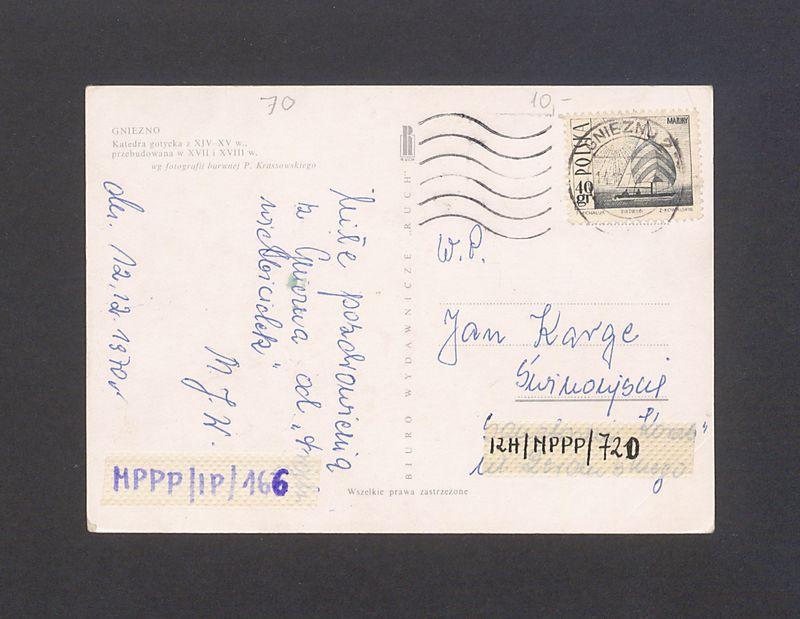 70
10,-
GNIEZNO
Katedra gotycka z XIV–XV w.,
przebudowana w XVII i XVIII w.
wg fotografii barwnej P. Krassowskiego
Miłe pozdrowienia
z Gniezna od
dn. 12.12.1970 r
M J W.
MPPP/IP/166
BIURO WYDAWNICZE „RUCH”
Wszelkie prawa zastrzeżone
POLSKA
MAZURY
40 gr
GNIEZNO 2
W.P.
Jan Karge
Świnoujście
12H/MPPP/720